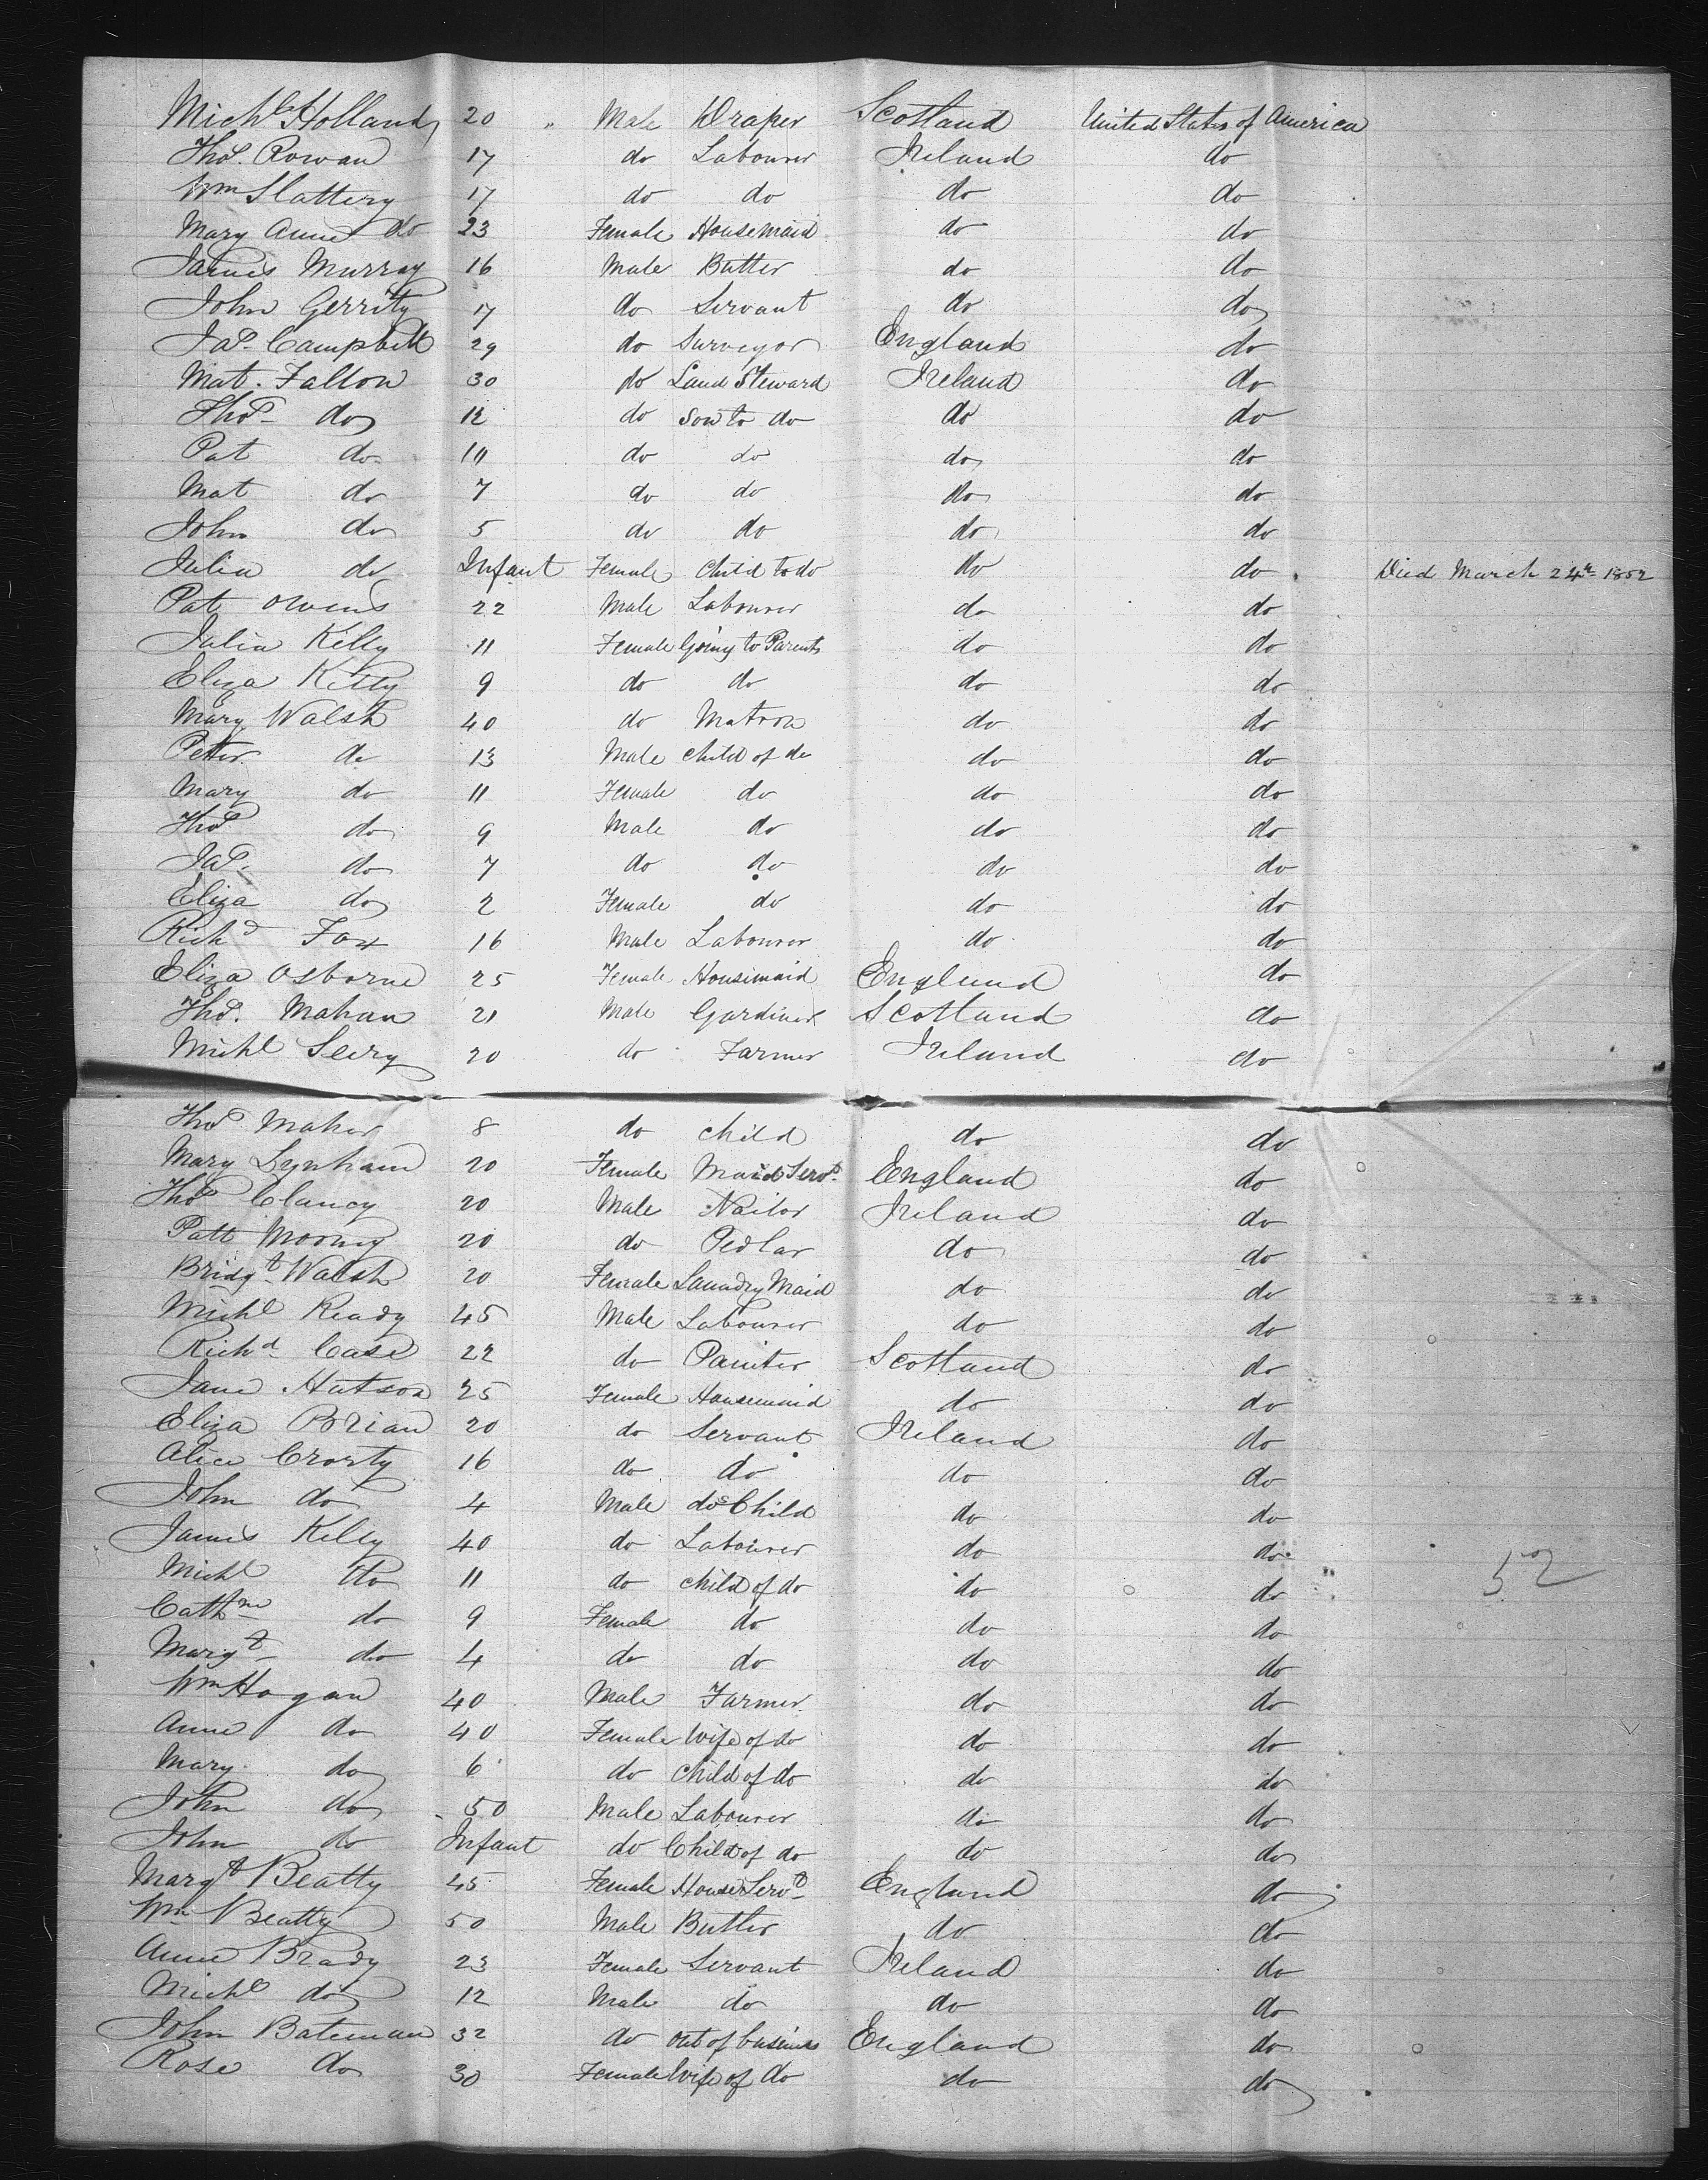 Michl Holland 20 " Male Draper Scotland United States of America
Thos. Rowan 17 do Labourer Ireland do
Wm Slattery 17 do do do do
Mary Anne do 23 Female Housemaid do do
James Murray 16 Male Butler do do
John Gerrity 17 do Servant do do
Jas. Campbell 29 do Surveyor England do
Mat. Fallon 30 do Land Steward Ireland do
Thos. do 12 do Son to do do do
Pat do 10 do do do do
Mat do 7 do do do do
John do 5 do do do do
Julia do Infant Female Child to do do do Died March 24th 1852
Pat Owens 22 Male Labourer do do
Julia Kelly 11 Female Going to Parents do do
Eliza Kelly 9 do do do do
Mary Walsh 40 do Matron do do
Petter do 13 Male Child of do do do
Mary do 11 Female do do do
Thos do 9 Male do do do
Jas. do 7 do do do do
Eliza do 2 Female do do do
Richd Fox 16 Male Labourer do do
Eliza Osborne 25 Female Housemaid England do
Thos. Mahan 21 Male Gardiner Scotland do
Michl Seery 20 do Farmer Ireland do
Thos Maher 8 do child do do
Mary Lynham 20 Female Maid Servt England do
Thos Clancy 20 Male Nailor Ireland do
Patt Mooney 20 do Pedlar do do
Bridgt Walsh 20 Female Laundry Maid do do
Michl Ready 45 Male Labourer do do
Richd Case 22 do Painter Scotland do
Jane Hutson 25 Female Housemaid do do
Eliza Brian 20 do Servant Ireland do
Alice Crosty 16 do do do do
John do 4 Male dos Child do do
James Kelly 40 do Labourer do do
Michl do 11 do child of do do do 52
Cathne do 9 Female do do do
Margt do 4 do do do do
Wm Hogan 40 Male Farmer do do
Anne do 40 Female Wife of do do do
Mary do 6 do Child of do do do
John do 50 Male Labourer do do
John do Infant do Child of do do do
Margt Beatty 45 Female House Servt England do
Wm Beatty 50 Male Butler do do
Anne Brady 23 Female Servant Ireland do
Michl do 12 Male do do do
John Bateman 32 do out of business England do
Rose do 30 Female Wife of do do do